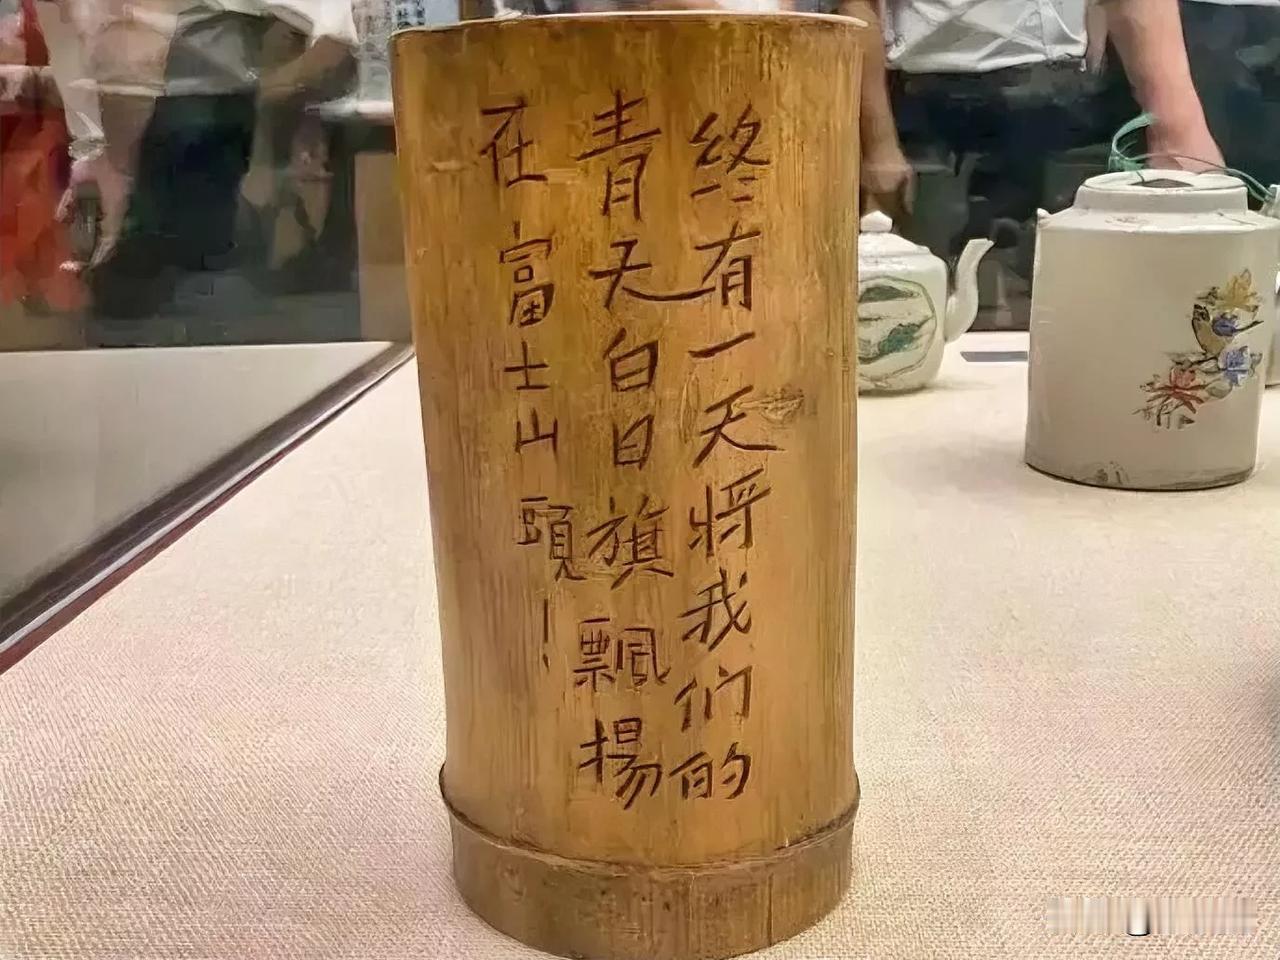 终有一天将我们的
青天白日旗飄揚
在富士山頭！